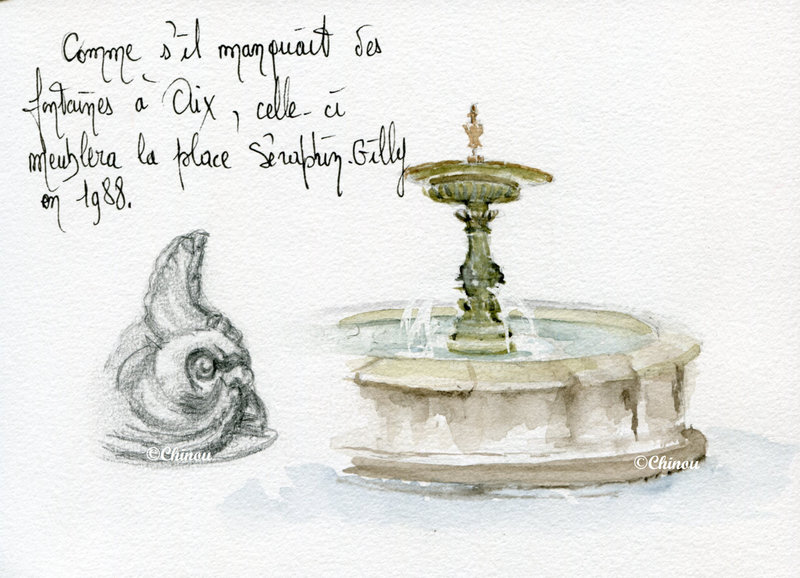 Comme s'il manquait des
fontaines à Aix, celle-ci
meublera la place Séraphin-Gilly
en 1988.
©Chinou
©Chinou